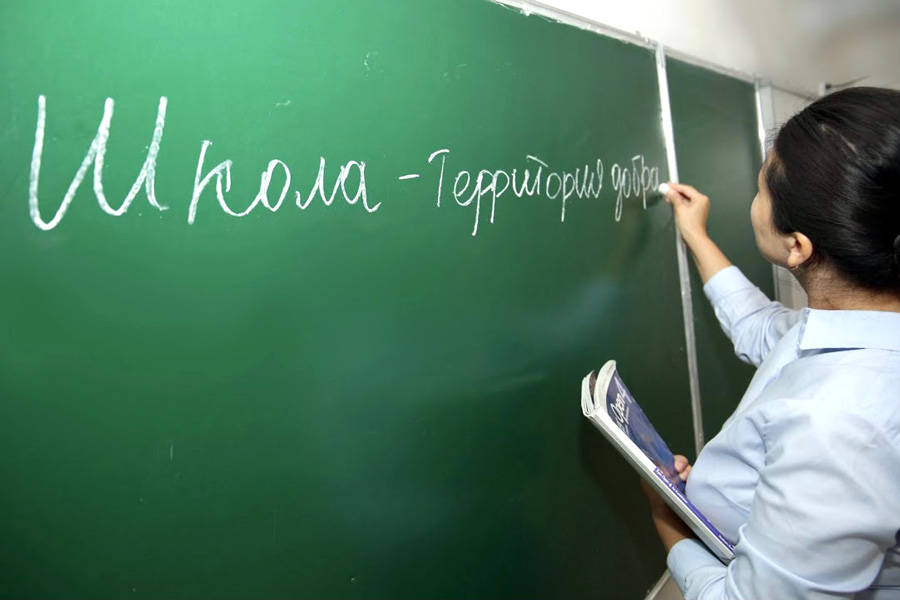 Школа - Территория добра